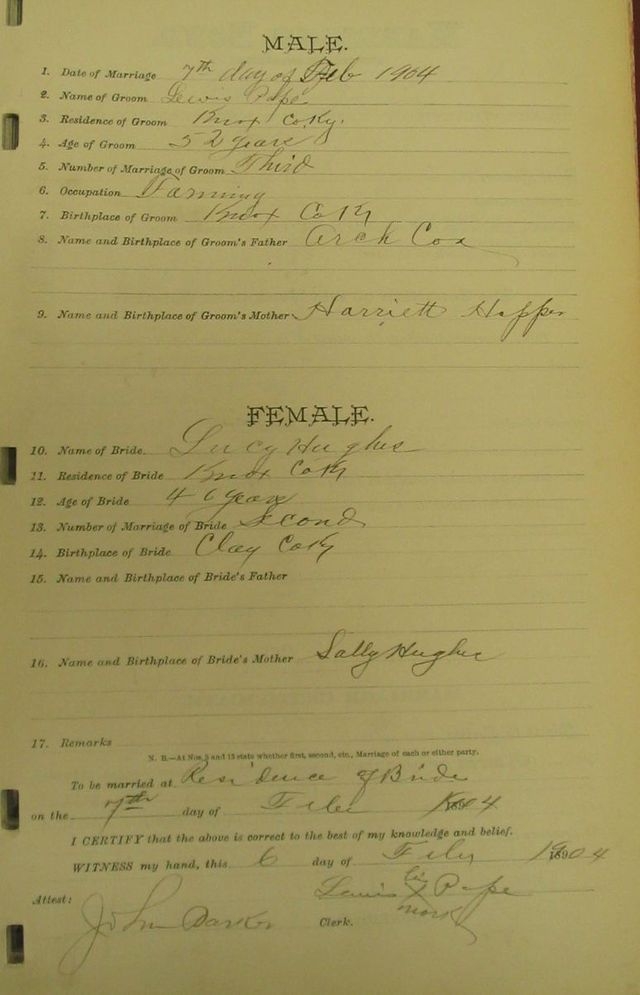 MALE.
1. Date of Marriage 7th day of Feb 1904
2. Name of Groom Lewis Pope
3. Residence of Groom Knox Co Ky.
4. Age of Groom 52 years
5. Number of Marriage of Groom Third
6. Occupation Farming
7. Birthplace of Groom Knox Co Ky
8. Name and Birthplace of Groom's Father Arch Cox
9. Name and Birthplace of Groom's Mother Harriett
FEMALE.
10. Name of Bride. Lucy Hughes
11. Residence of Bride Knox Co Ky
12. Age of Bride 46 years
13. Number of Marriage of Bride Second
14. Birthplace of Bride Clay Co Ky
15. Name and Birthplace of Bride's Father
16. Name and Birthplace of Bride's Mother Sally Hughes
17. Remarks
N. B.—At Nos. 5 and 13 state whether first, second, etc., Marriage of each or either party.
To be married at Residence of Bride
on the 7th day of Feby 1904
I CERTIFY that the above is correct to the best of my knowledge and belief.
WITNESS my hand, this 6 day of Feby 1904
Attest: Lewis his X Pope
mark
John Parker Clerk.